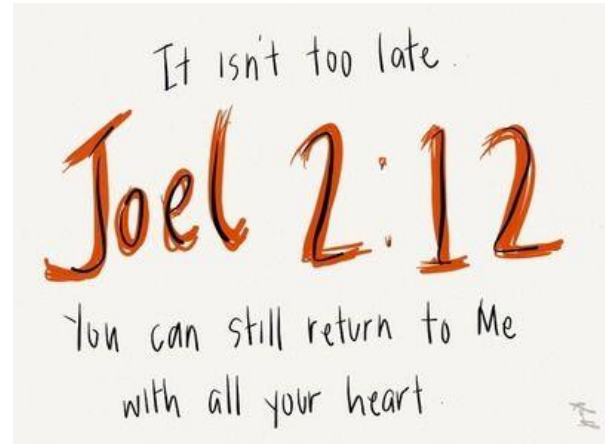 It isn't too late.
Joel 2:12
You can still return to Me
with all your heart.